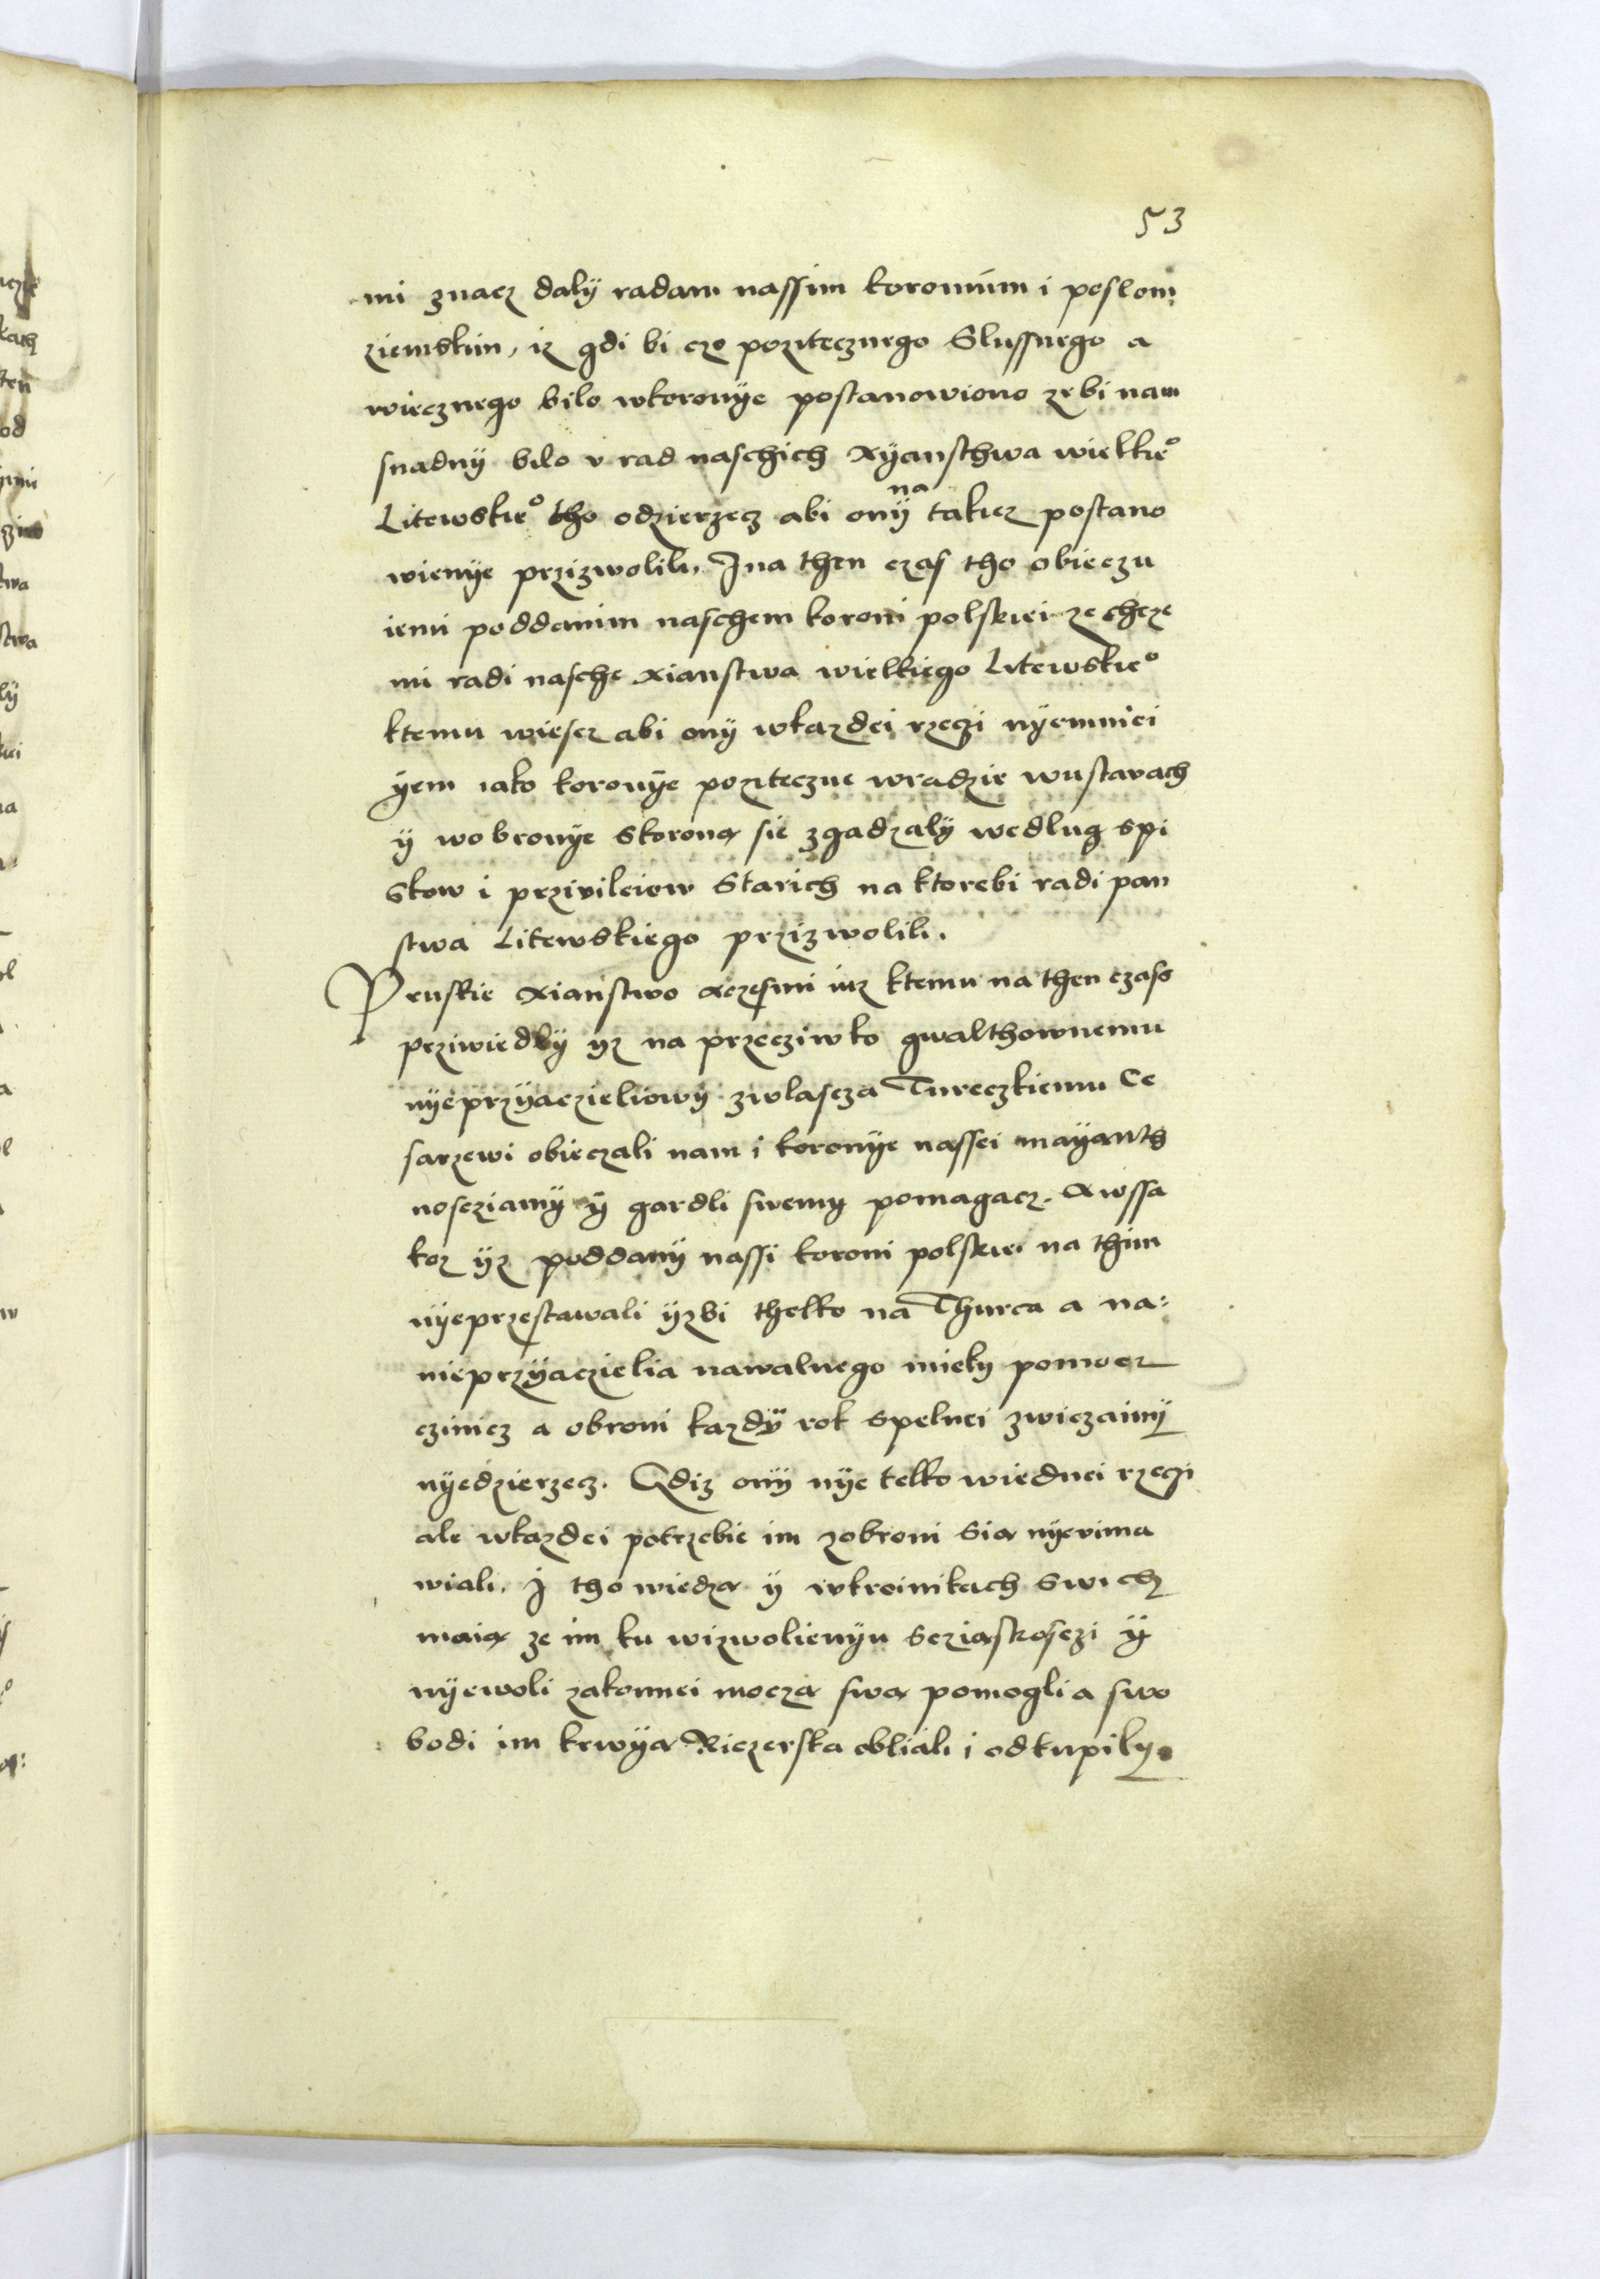 53
mi znacz dalÿ radam nassim koronnim i poslom
ziemskim, iz gdi bi czo pozitecznego Slussnego a
wiecznego bilo wkoronÿe postanowiono zebi nam
snadnÿ bilo v rad naschich xÿansthwa wielkie°
Litewskie° tho odzierzecz abi onÿ na takiez postano
wienÿe przizwolili. I na then czas tho obieczu
iemi poddanim naschem koroni polskiei ze chcze
mi radi nasche xianstwa wielkiego Litewskie°
ktemu wiescz abi onÿ wkazdei rzeczi nÿemniei
ÿem iako koronÿe poziteczne wradzie wustavach
ÿ wobronÿe skoroną sie zgadzalÿ wedlug spi
skow i przivileiow starich na ktorebi radi pan
stwa Litewskiego przizwolili.
Pruskie xianstwo aczesmi iuz ktemu na then czass
prziwiedlÿ ÿz na przecziwko gwalthownemu
nÿeprzÿaczieliowÿ zwlascza Tureczkiemu Ce
sarzewi obieczali nam i koronÿe nassei maÿanth
nosczianÿ ÿ gardli swemÿ pomagacz. A wssa
koz ÿz poddanÿ nassi koroni polskiei na thim
nÿeprzestawali ÿzbi thelko na Thurca a na:
nieprzÿaczielia nawalnego mielÿ pomocz
czinicz a obroni kazdÿ rok spelnei zwiczainÿ
nÿedzierzecz. Gdiz onÿ nÿe telko wiednei rzeczi
ale wkazdei potrzebie im zobroni sią nÿevima
wiali. I tho wiedzą ÿ wkroinikach swich
maią ze im ku wizwolienÿu scziąskosczi ÿ
nÿewoli zakonnei moczą swą pomogli a swo
bodi im krwÿą Riczerską obliali i odkupilÿ.